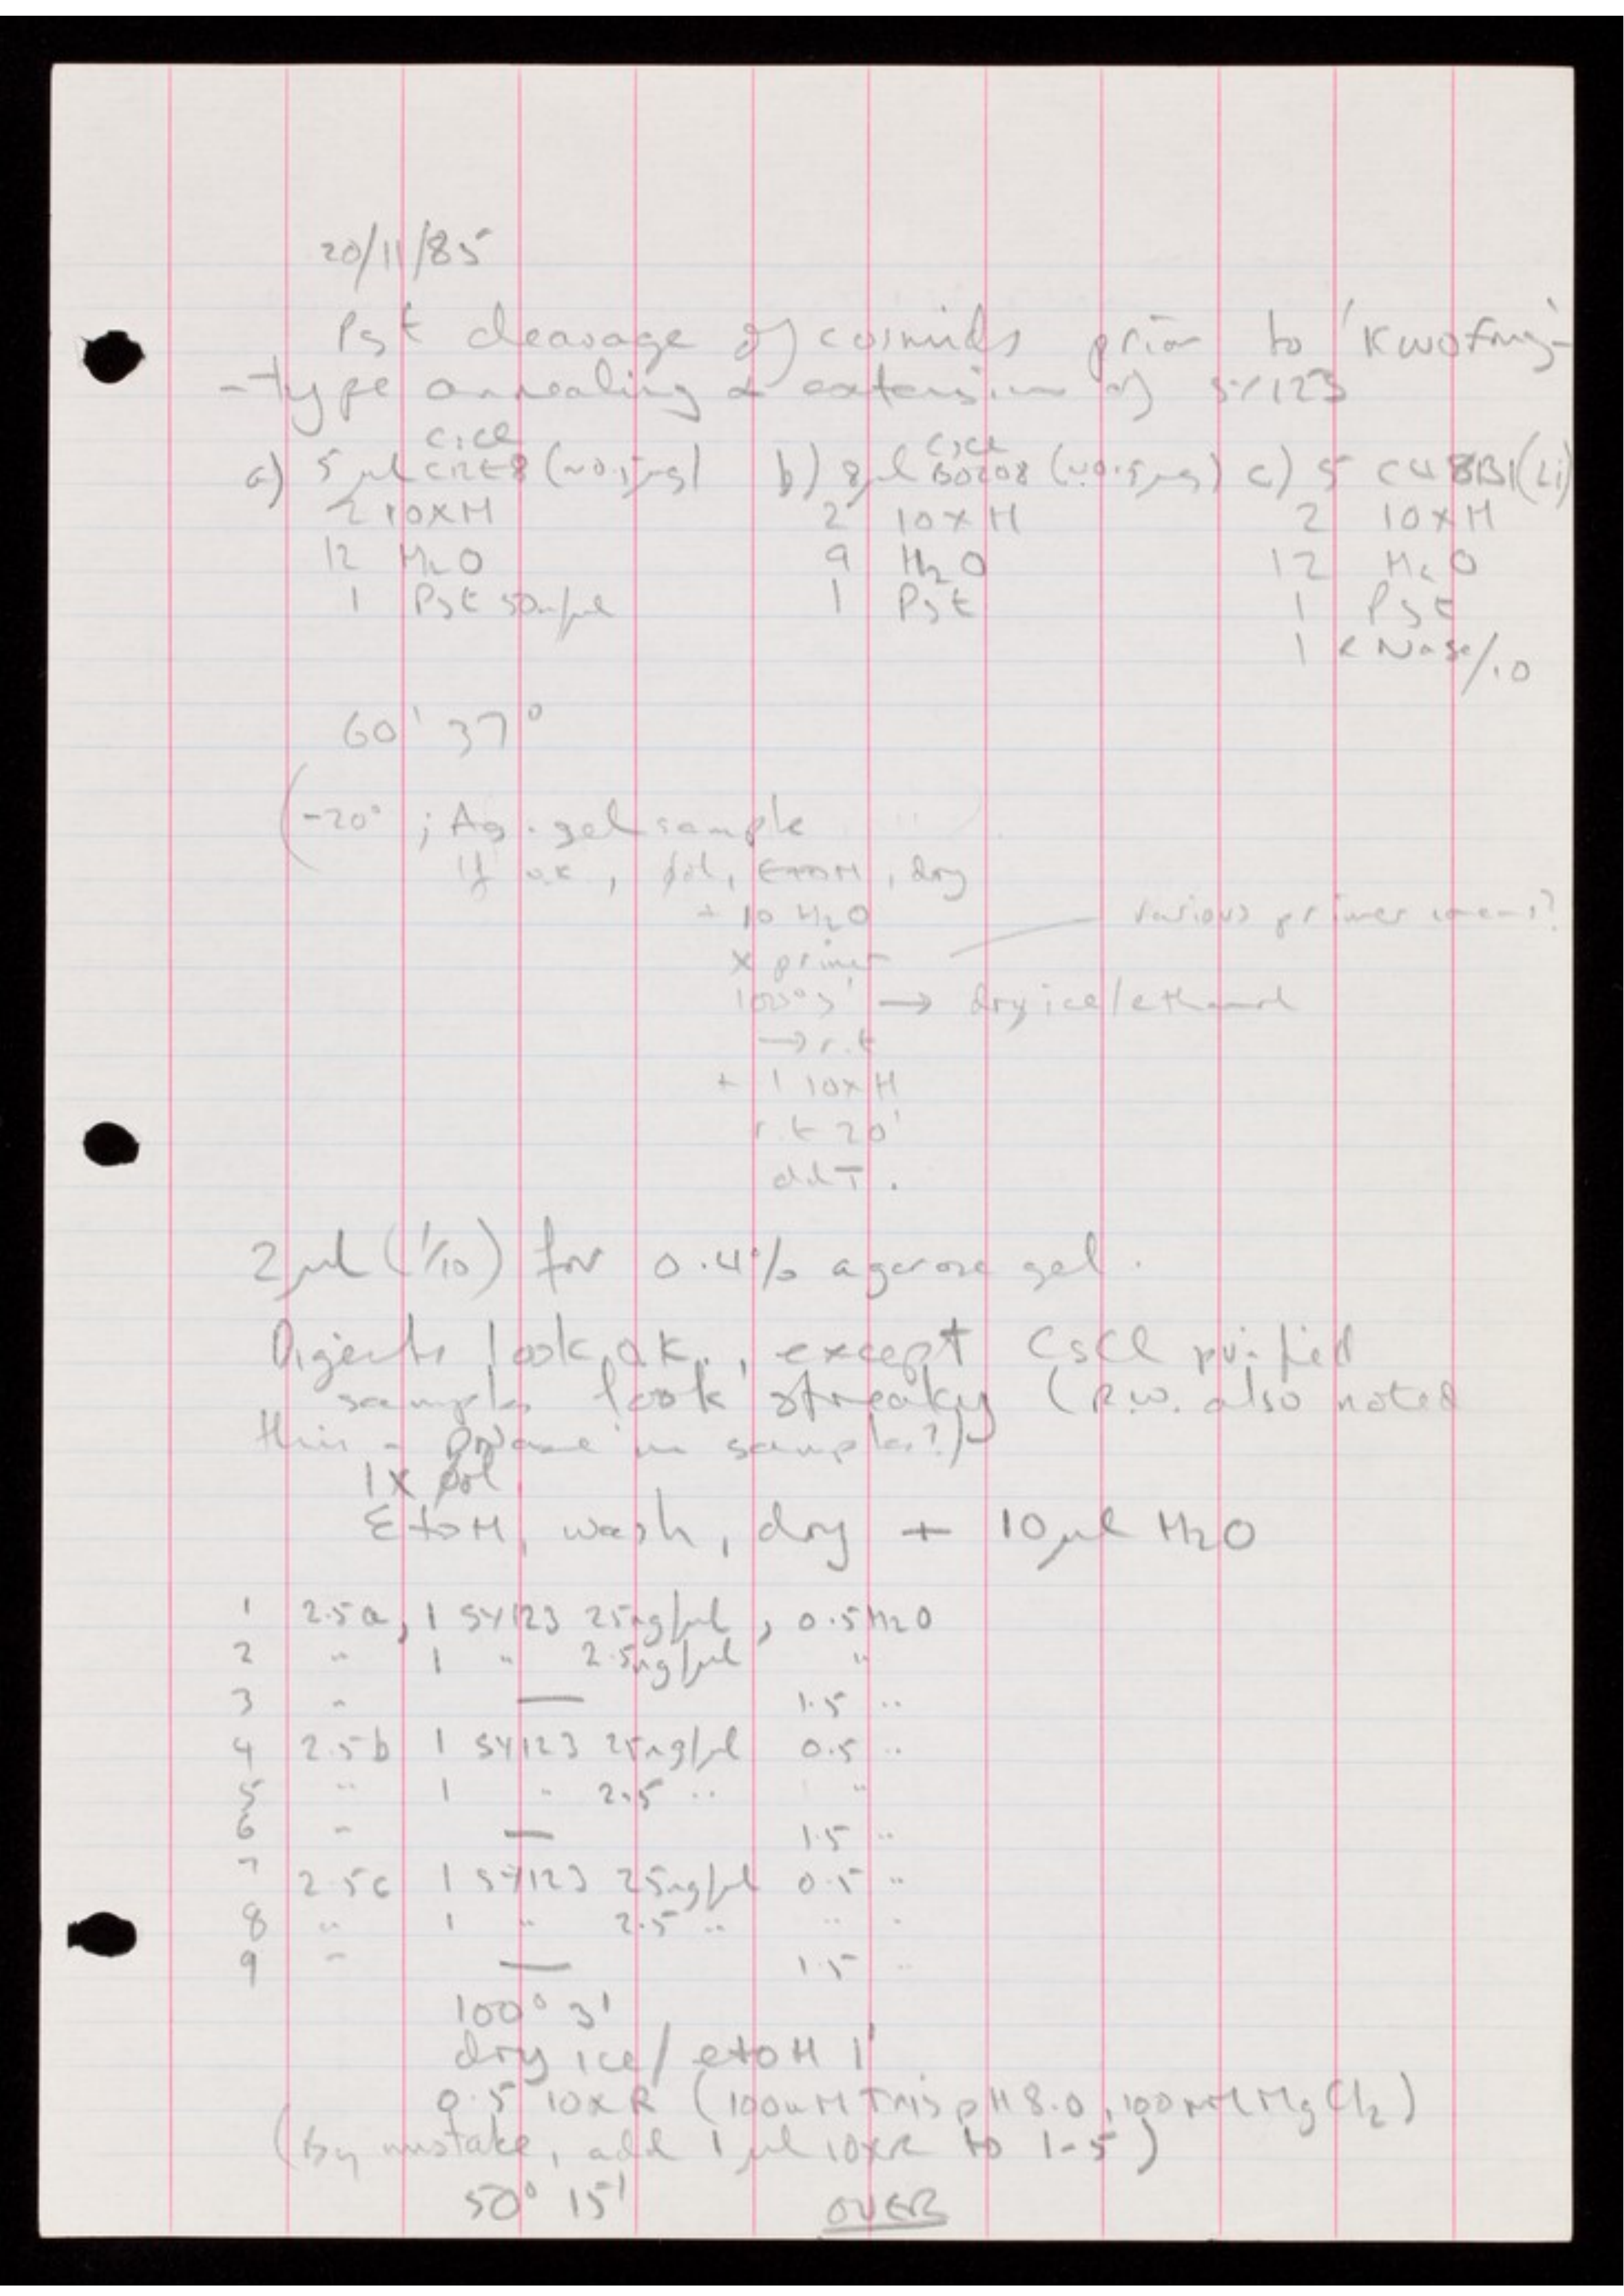 20/11/85
Pst cleavage of cosmids prior to 'Kwofng'-
-type annealing & extension of SY123
CsCl CsCl
a) 5 μl (~0.5μg) b) 8 μl B0208 (~0.5μg) c) 5 C48B1 (Li)
2 10xH 2 10xH 2 10xH
12 H2O 9 H2O 12 H2O
1 Pst 50u/μl 1 Pst 1 Pst
1 RNase/10
60' 37°
(-20° ; Ag. gel sample
If o.k., φol, EtOH, dry
+ 10 H2O various primer ?
x primer
100° 3' → dry ice/ethanol
→ r.t
+ 1 10xH
r.t 20'
ddT.
2μl (1/10) for 0.4% agarose gel.
Digests look o.k., except CsCl purified
samples look streaky (R.W. also noted
this - DNase in samples?)
1x φol
EtOH, wash, dry + 10μl H2O
1 2.5a, 1 SY123 25ng/μl, 0.5 H2O
2 " 1 " 2.5ng/μl "
3 " — 1.5 "
4 2.5b 1 SY123 25ng/μl 0.5 "
5 " 1 " 2.5 " "
6 " — 1.5 "
7 2.5c 1 SY123 25ng/μl 0.5 "
8 " 1 " 2.5 " " "
9 " — 1.5 "
100° 3'
dry ice/etOH 1'
0.5 10xR (100mM Tris pH 8.0, 100mM MgCl2)
(By mistake, add 1 μl 10xR to 1-5)
50° 15' OVER